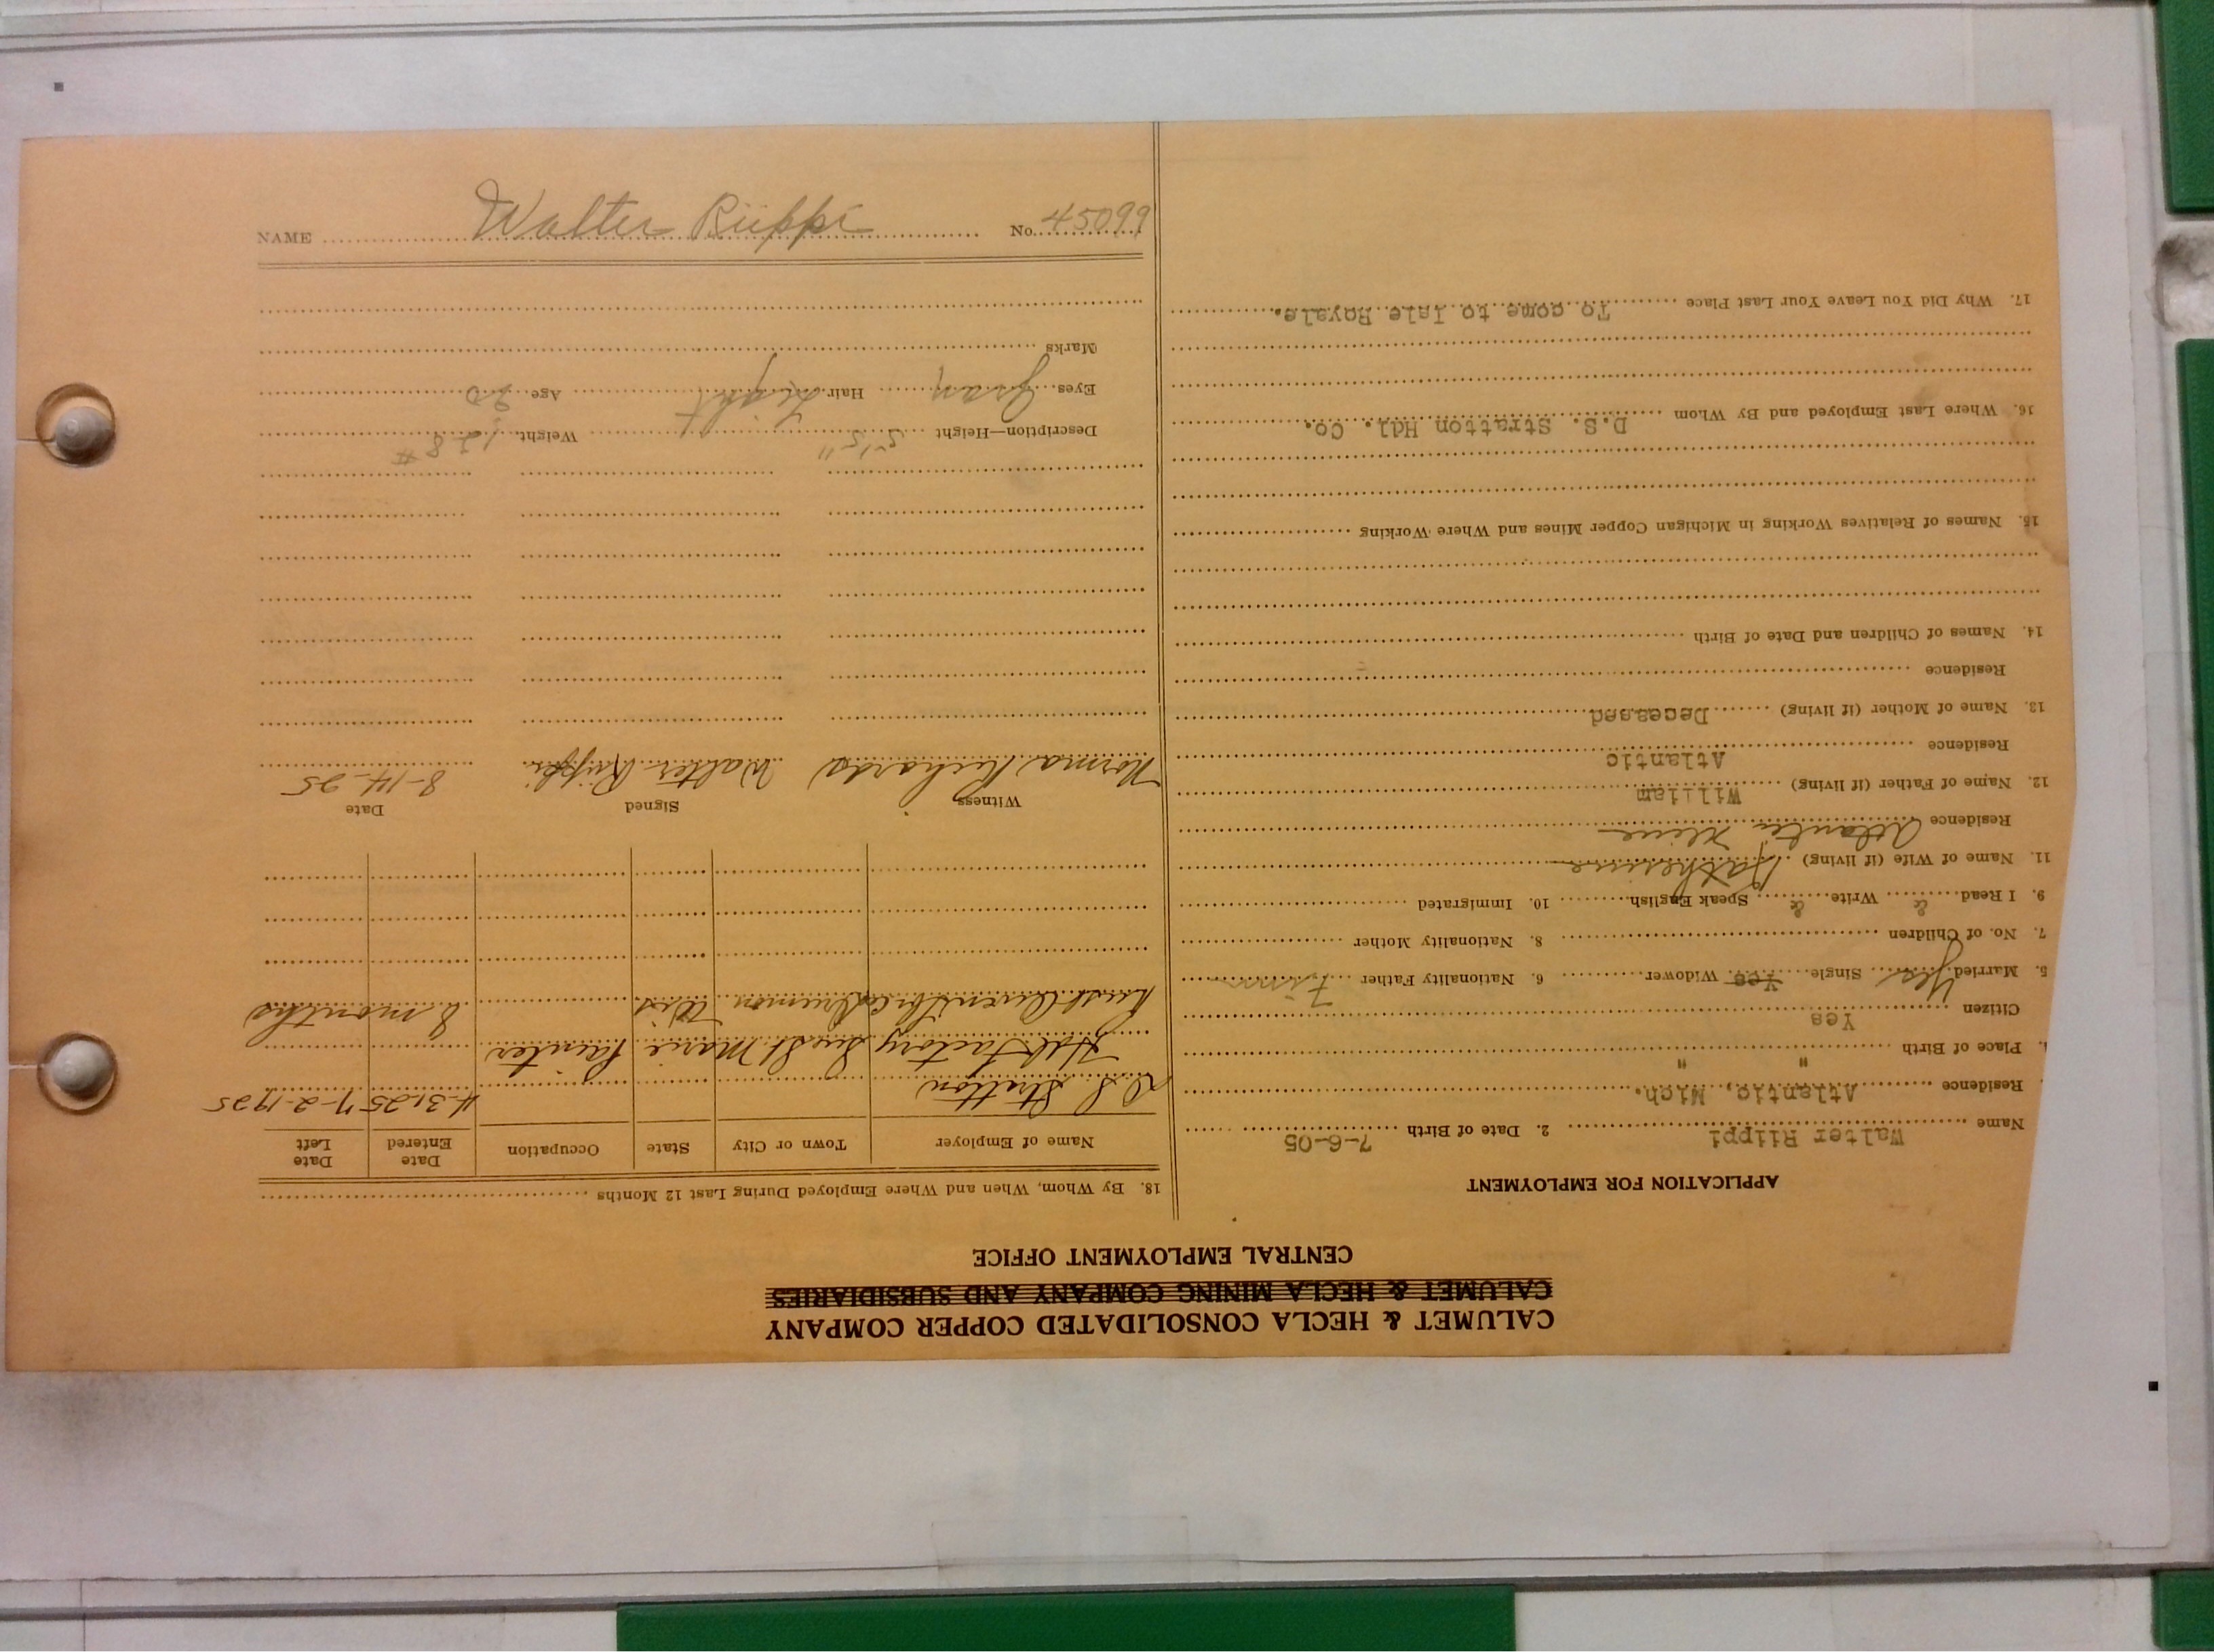 CALUMET & HECLA CONSOLIDATED COPPER COMPANY
CALUMET & HECLA MINING COMPANY AND SUBSIDIARIES
CENTRAL EMPLOYMENT OFFICE
APPLICATION FOR EMPLOYMENT
Name Walter Riippi 2. Date of Birth 7-6-05
Residence Atlantic, Mich.
Place of Birth " "
Citizen Yes
5. Married Yes Single Yes Widower 6. Nationality Father Finn
7. No. of Children 8. Nationality Mother
9. I Read & Write & Speak English 10. Immigrated
11. Name of Wife (if living) Katherine
Residence Atlantic Mine
12. Name of Father (if living) William
Residence Atlantic
13. Name of Mother (if living) Deceased
Residence
14. Names of Children and Date of Birth
15. Names of Relatives Working in Michigan Copper Mines and Where Working
16. Where Last Employed and By Whom D.S. Stratton Hdl. Co.
17. Why Did You Leave Your Last Place To come to Isle Royale.
18. By Whom, When and Where Employed During Last 12 Months
Name of Employer Town or City State Occupation Date Entered Date Left
D. S. Stratton 4-31-25 7-2-1925
Hdl Factory Sault Marie Painter
Drummon Wis 8 months
Witness Signed Date
Norma Richards Walter Riippi 8-14-25
Description—Height 5'5" Weight 128#
Eyes Gray Hair Light Age 20
Marks
NAME Walter Riippi No. 45099